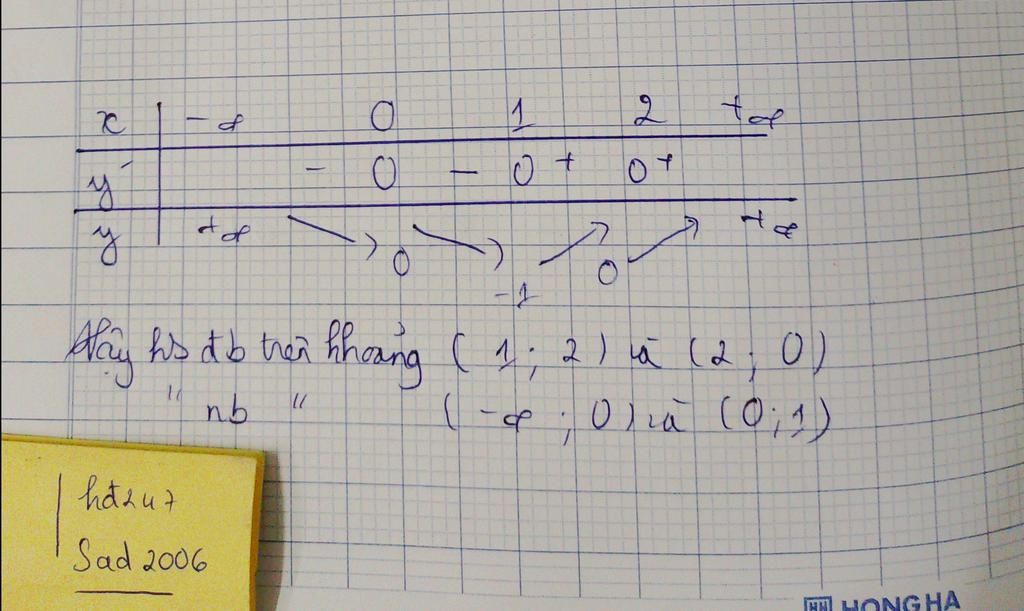 x -∞ 0 1 2 +∞
y' - 0 - 0 + 0 +
y +∞ 0 -1 0 +∞
Vậy hs đb trên khoảng (1; 2) và (2; 0)
" nb " (-∞; 0) và (0; 1)
hđ247
Sad 2006
HH HONG HA